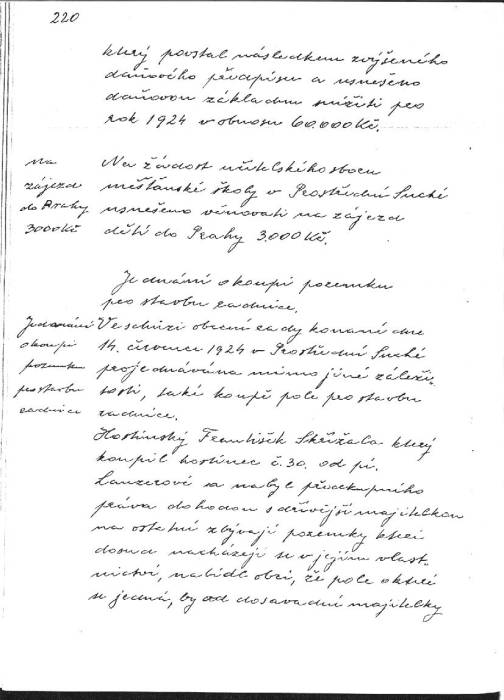 220
který povstal následkem zvýšeného
daňového předpisu a usnešeno
daňovou základnu snížiti pro
rok 1924 v obnosu 60.000 Kč.
na
zájezd
do Prahy
3000 Kč
Na žádost učitelského sboru
měšťanské školy v Prostřední Suché
usnešeno věnovati na zájezd
dětí do Prahy 3.000 Kč.
Jednání o koupi pozemku
pro stavbu radnice.
Jednání
o koupi
pozemku
pro stavbu
radnice
Ve schůzi obecní rady konané dne
14. července 1924 v Prostřední Suché
projednávána mimo jiné záleži-
tosti, také koupě pole pro stavbu
radnice.
Hostinský František Skřížala který
koupil hostinec č. 30. od pí.
Lanzerové a nabyl předkupního
práva dohodou s dřívější majitelkou
na ostatní zbývají pozemky kteri
dosud nacházejí se v jejím vlast-
nictví, nabídl obci, že pole o které
se jedná, by od dosavadní majitelky